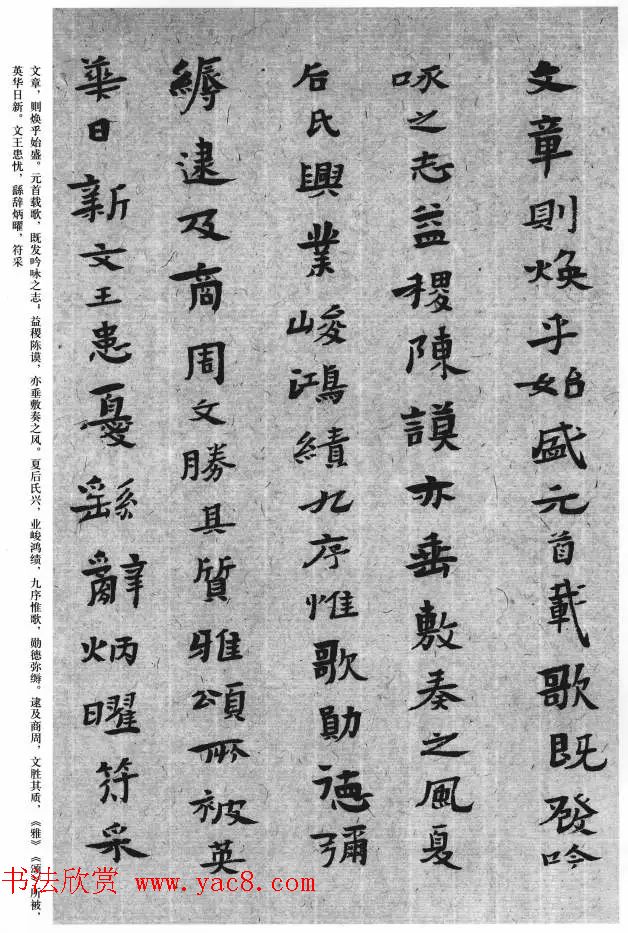 文章則煥乎始盛元首載歌既發吟
咏之志益稷陳謨亦垂敷奏之風夏
后氏興業峻鴻績九序惟歌勛德彌
縟逮及商周文勝其質雅頌所被英
華日新文王患憂繇辭炳曜符采
文章，则焕乎始盛。元首载歌，既发吟咏之志；益稷陈谟，亦垂敷奏之风。夏后氏兴，业峻鸿绩，九序惟歌，勋德弥缛。逮及商周，文胜其质，《雅》《颂》所被，
英华日新。文王患忧，繇辞炳曜，符采
书法欣赏 www.yac8.com